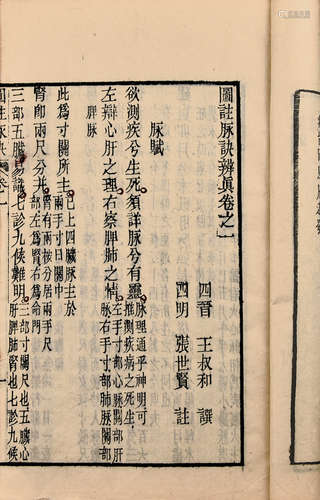 圖註脉訣辨真卷之一
四晉 王叔和 譔
四明 張世賢 註
脉賦
欲測疾兮生死須詳脉兮有靈
脉理通乎神明可
推測疾病之死生
左辯心肝之理右察脾肺之情
左手寸部心脉關部肝
脉右手寸部肺脉關部
脾脉
此為寸關所主
已上四臟脉主於
兩手寸口關中
腎卽兩尺分并
腎有兩枚分居兩手尺
部左為腎右為命門
三部五臟易識七診九候難明
三部寸關尺也五臟心
肝脾肺腎也七診九候
圖註脉訣 卷一